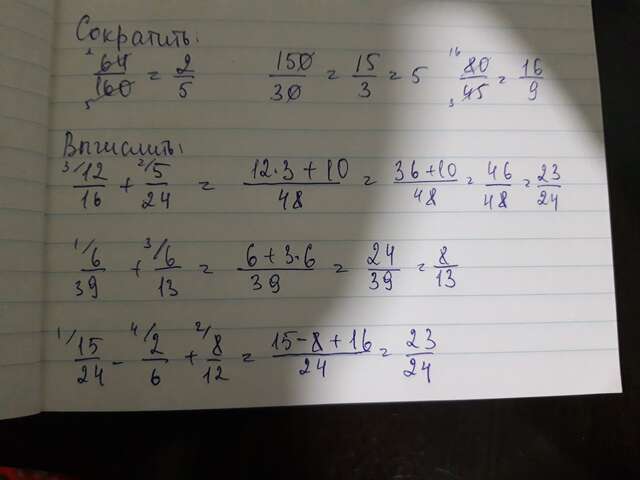 Сократить:
2 64/160 5 = 2/5 150/30 = 15/3 = 5 16 80/45 9 = 16/9
Вычислить:
3/ 12/16 + 2/ 5/24 = 12·3+10/48 = 36+10/48 = 46/48 = 23/24
1/ 6/39 + 3/ 6/13 = 6+3·6/39 = 24/39 = 8/13
1/ 15/24 - 4/ 2/6 + 2/ 8/12 = 15-8+16/24 = 23/24